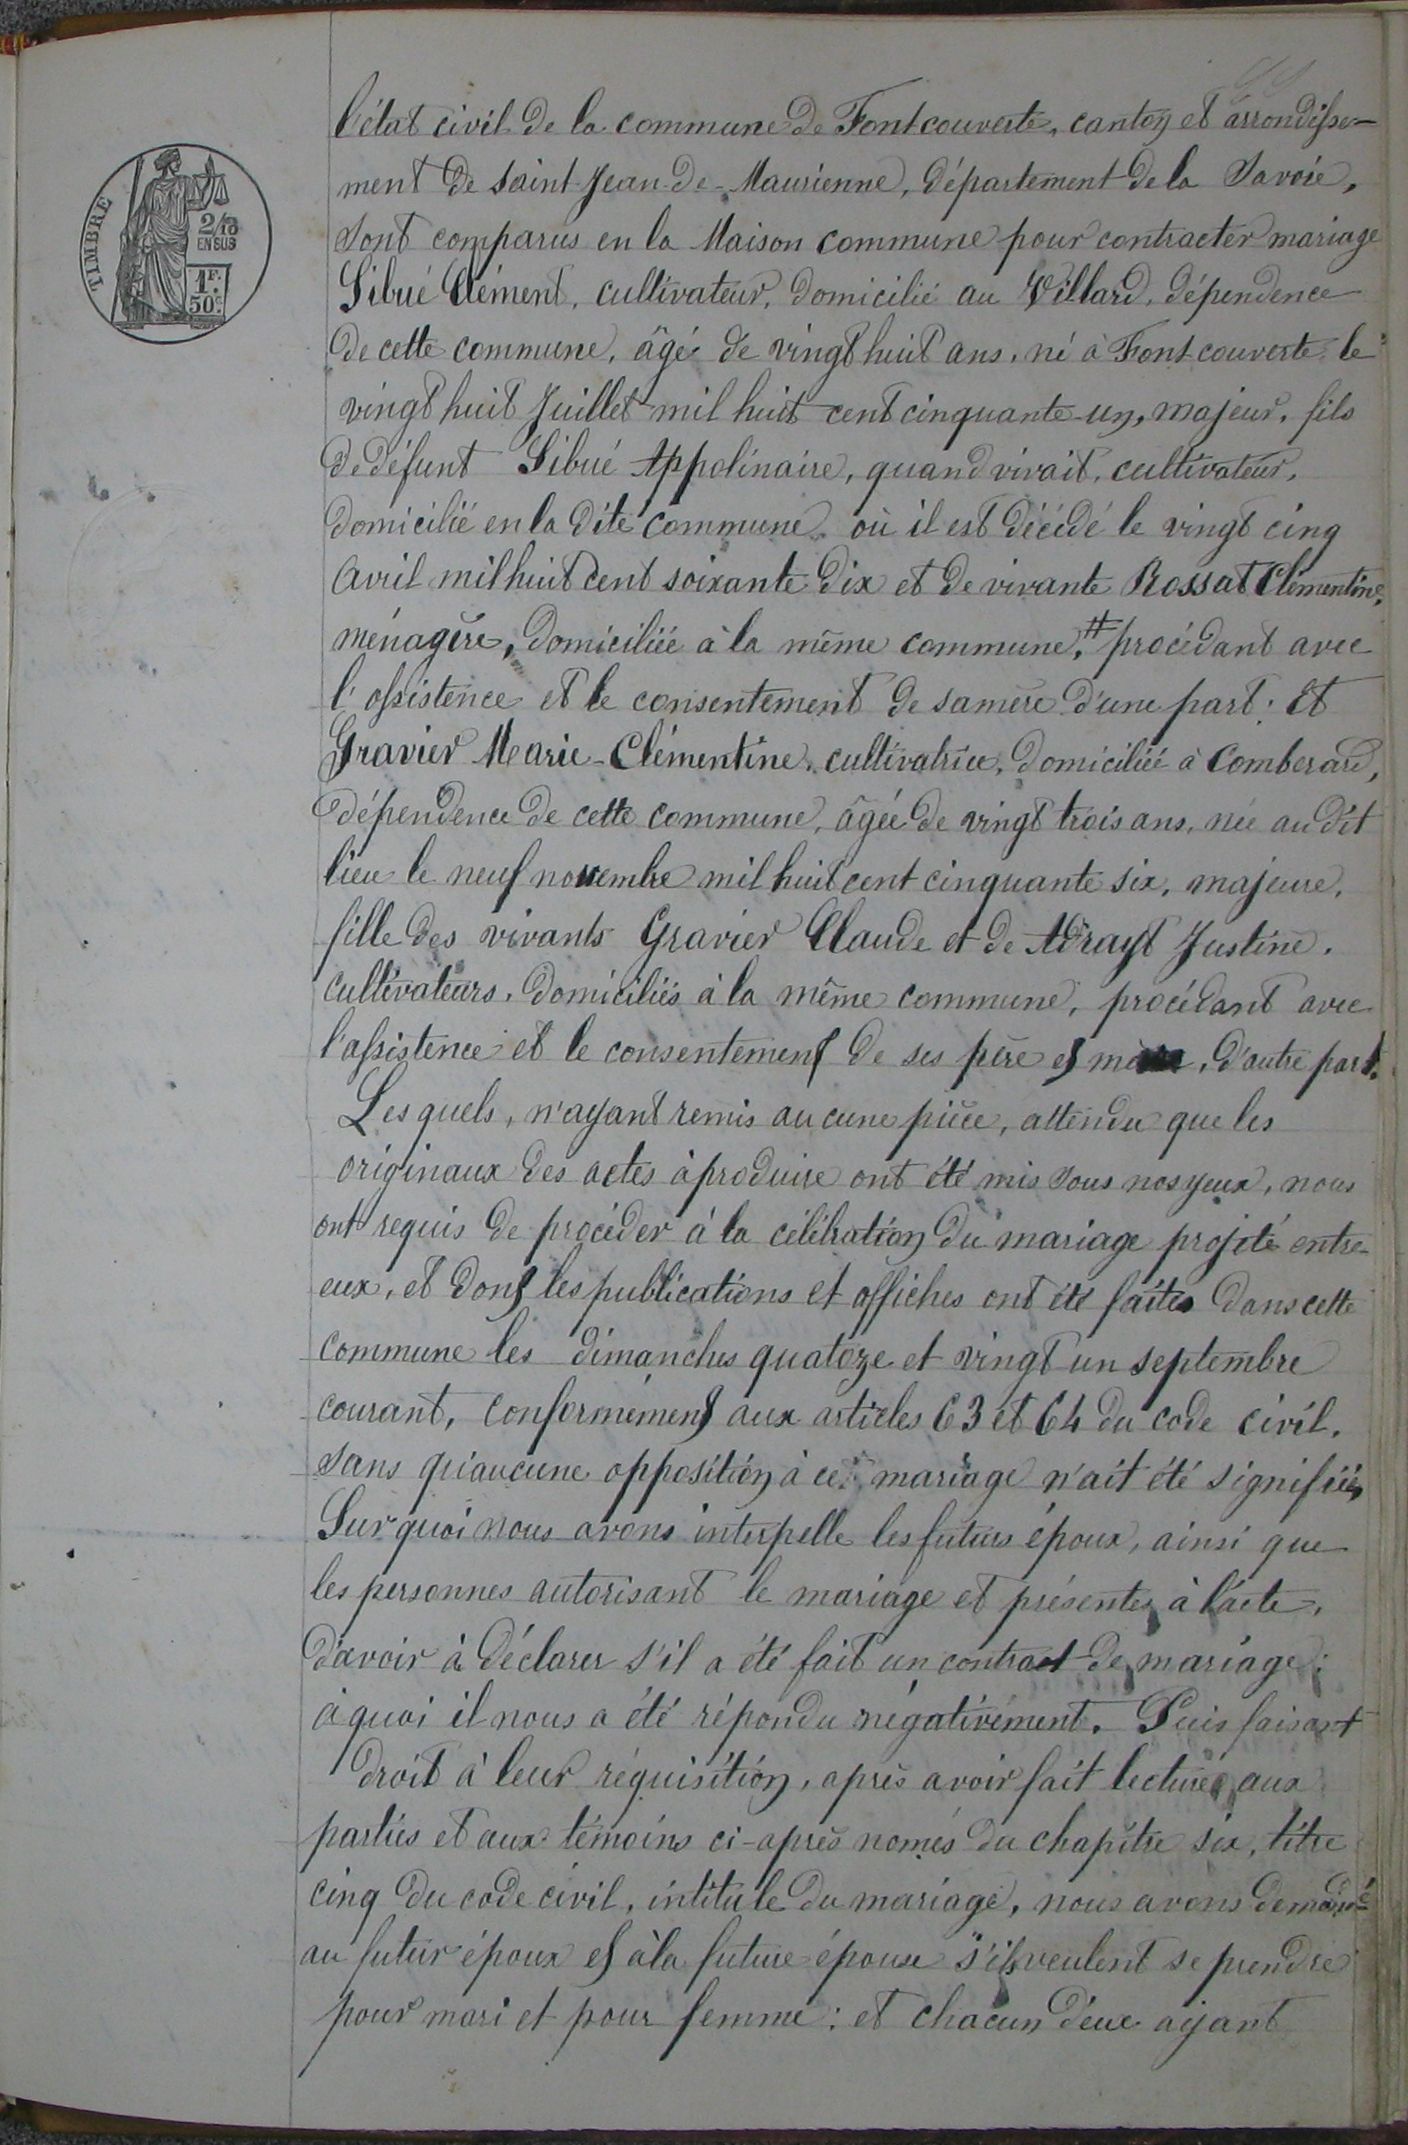 TIMBRE
2/10
EN SUS
1F.
50c.
l'état civil de la commune de Fontcouverte, canton et arrondisse-
ment de saint-Jean-de-Maurienne, département de la Savoie,
sont comparus en la Maison commune pour contracter mariage
Sibué Clément, cultivateur, domicilié au Villard, dépendence
de cette commune, âgé de vingt huit ans, né à Fontcouverte le
vingt huit Juillet mil huit cent cinquante-un, majeur, fils
de défunt Sibué Appolinaire, quand vivait, cultivateur,
domicilié en la dite commune où il est décédé le vingt cinq
avril mil huit cent soixante dix et de vivante Rossat Clémentine,
ménagère, domiciliée à la même commune, # procédant avec
l'assistence et le consentement de sa mère d'une part : Et
Gravier Marie-Clémentine, cultivatrice, domiciliée à Comberard,
dépendence de cette commune, âgée de vingt trois ans, née au dit
lieu le neuf novembre mil huit cent cinquante six, majeure,
fille des vivants Gravier Claude et de Adrayt Justine,
cultivateurs, domiciliés à la même commune, procédant avec
l'assistence et le consentement de ses père et mère, d'autre part.
Lesquels, n'ayant remis aucune pièce, attendu que les
originaux des actes à produire ont été mis sous nos yeux, nous
ont requis de procéder à la célébration du mariage projeté entre
eux, et dont les publications et affiches ont été faites dans cette
commune les dimanches quatoze et vingt un septembre
courant, conformément aux articles 63 et 64 du code civil,
sans qu'aucune opposition à ce mariage n'ait été signifiée,
Sur quoi nous avons interpellé les futurs époux, ainsi que
les personnes autorisant le mariage et présentes à l'acte,
d'avoir à déclarer s'il a été fait un contrat de mariage ;
à quoi il nous a été répondu négativement. Puis faisant
droit à leur réquisition, après avoir fait lecture aux
parties et aux témoins ci-après només du chapître six, titre
cinq du code civil, intitulé du mariage, nous avons demandé
au futur époux et à la future épouse s'ils veulent se prendre
pour mari et pour femme : et chacun d'eux ayant